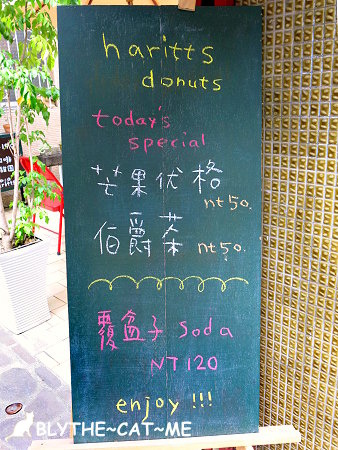 haritts
donuts
today's
special
芒果优格
nt50.
伯爵茶
nt50.
覆盆子 soda
NT 120
enjoy !!!
BLYTHE~CAT~ME